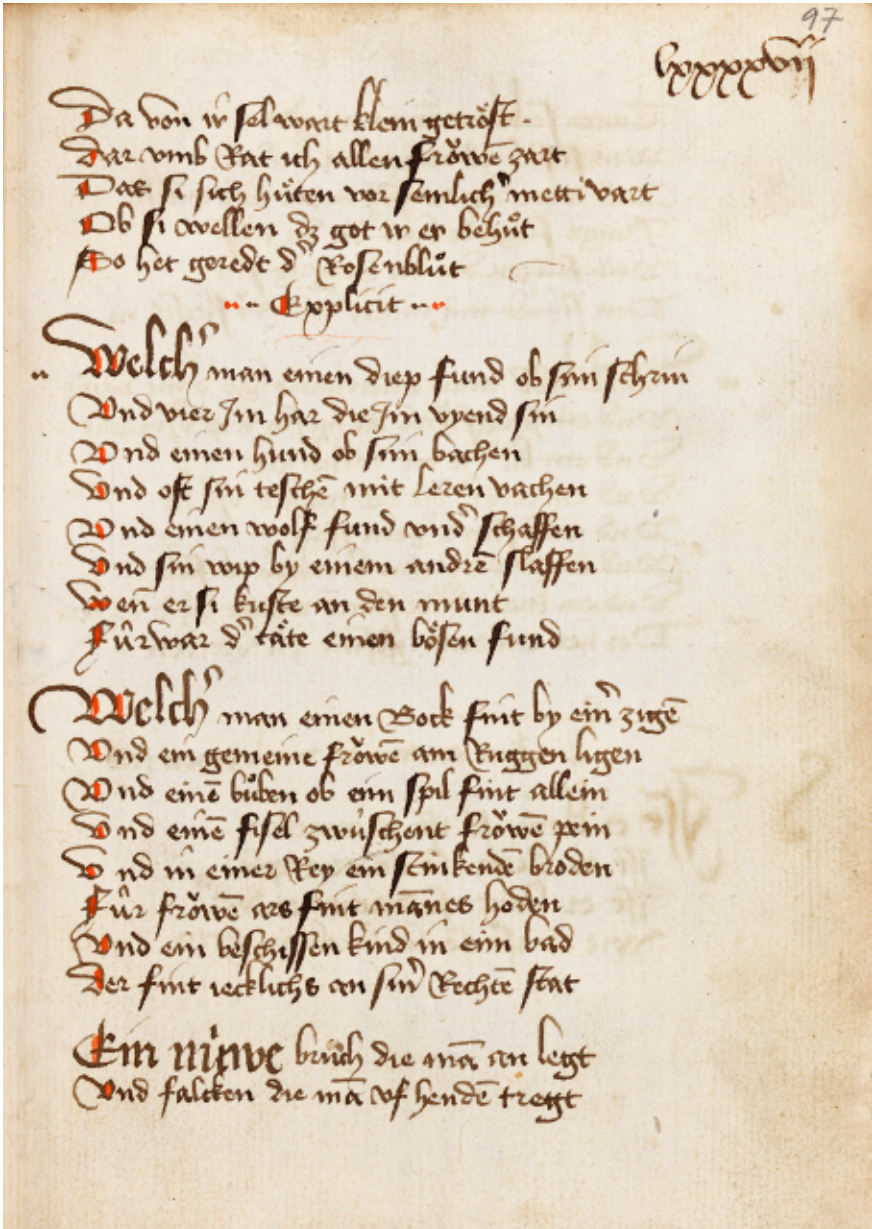 97
lxxxxvij
Da von ir sel wart klein getröst ·
Dar vmb Rat ich allen fröwē zart
Das si sich hüten vor semlichʼ metti vart
Ob si wellen dz got ir er behuͤt
So het geredt dʼ Rosenbluͤt
·· ·· Explicit ·· ··
Welchʼ man einen diep fund ob sim schrin
Vnd vier Jm har die Jm vyend sin
Vnd einen hund ob sim bachen
Vnd oft sin teschē mit leren vachen
Vnd einen wolf fund vndʼ schaffen
Vnd sin wip by einem andrē slaffen
Wen̄ er si kuste an den munt
Fûrwar dʼ täte einen bösen fund
Welchʼ man einen Bock fint by ein̄ʼ zigē
Vnd ein gemeine fröwē am Ruggen ligen
Vnd einē buͦben ob eim spil fint allein
Vnd einē fisel zwüschent fröwē pein
Vnd in einer Rey ein stinkendē broden
Fûr fröwē ars fint mānes hoden
Vnd ein beschissen kind in eim bad
Der fint iecklichs an sin̄ʼ Rechtē stat
Ein nüwe bruch die mā an legt
Vnd falcken die mā vf hendē tregt